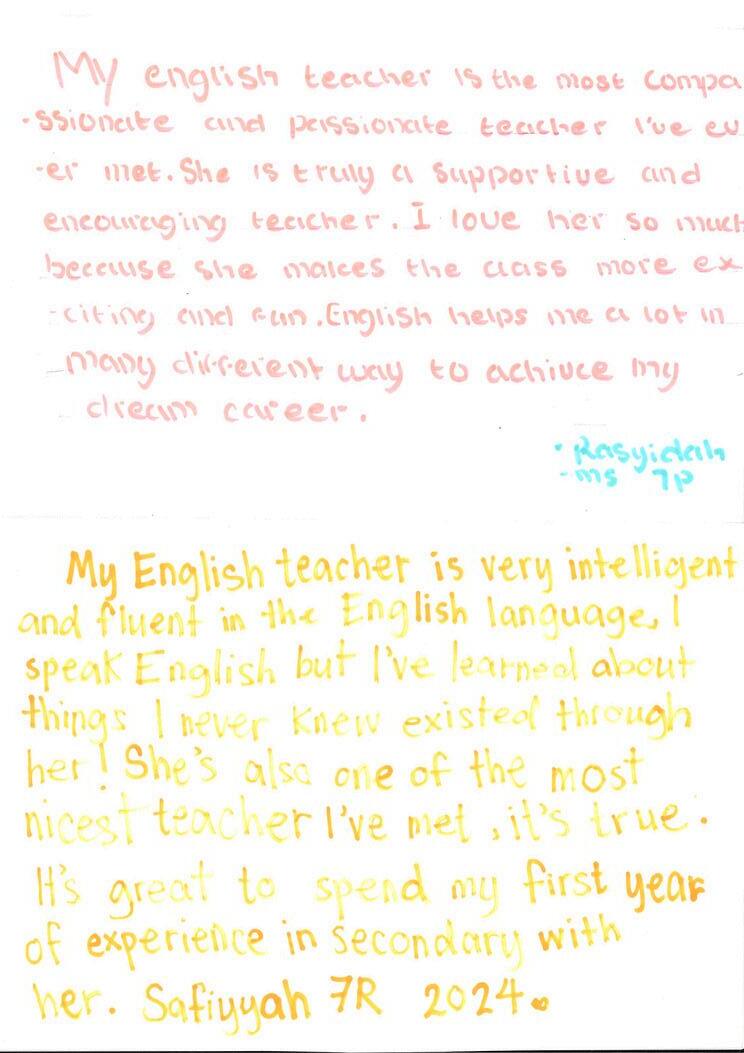 My english teacher is the most compa
-ssionate and passionate teacher I've ev
-er met. She is truly a supportive and
encouraging teacher. I love her so much
because she makes the class more ex
-citing and fun. English helps me a lot in
many different way to achiuce my
dream career.
- Rasyidah
- ms 7P
My English teacher is very intelligent
and fluent in the English language, I
speak English but I've learned about
things I never knew existed through
her! She's also one of the most
nicest teacher I've met, it's true.
It's great to spend my first year
of experience in secondary with
her. Safiyyah 7R 2024